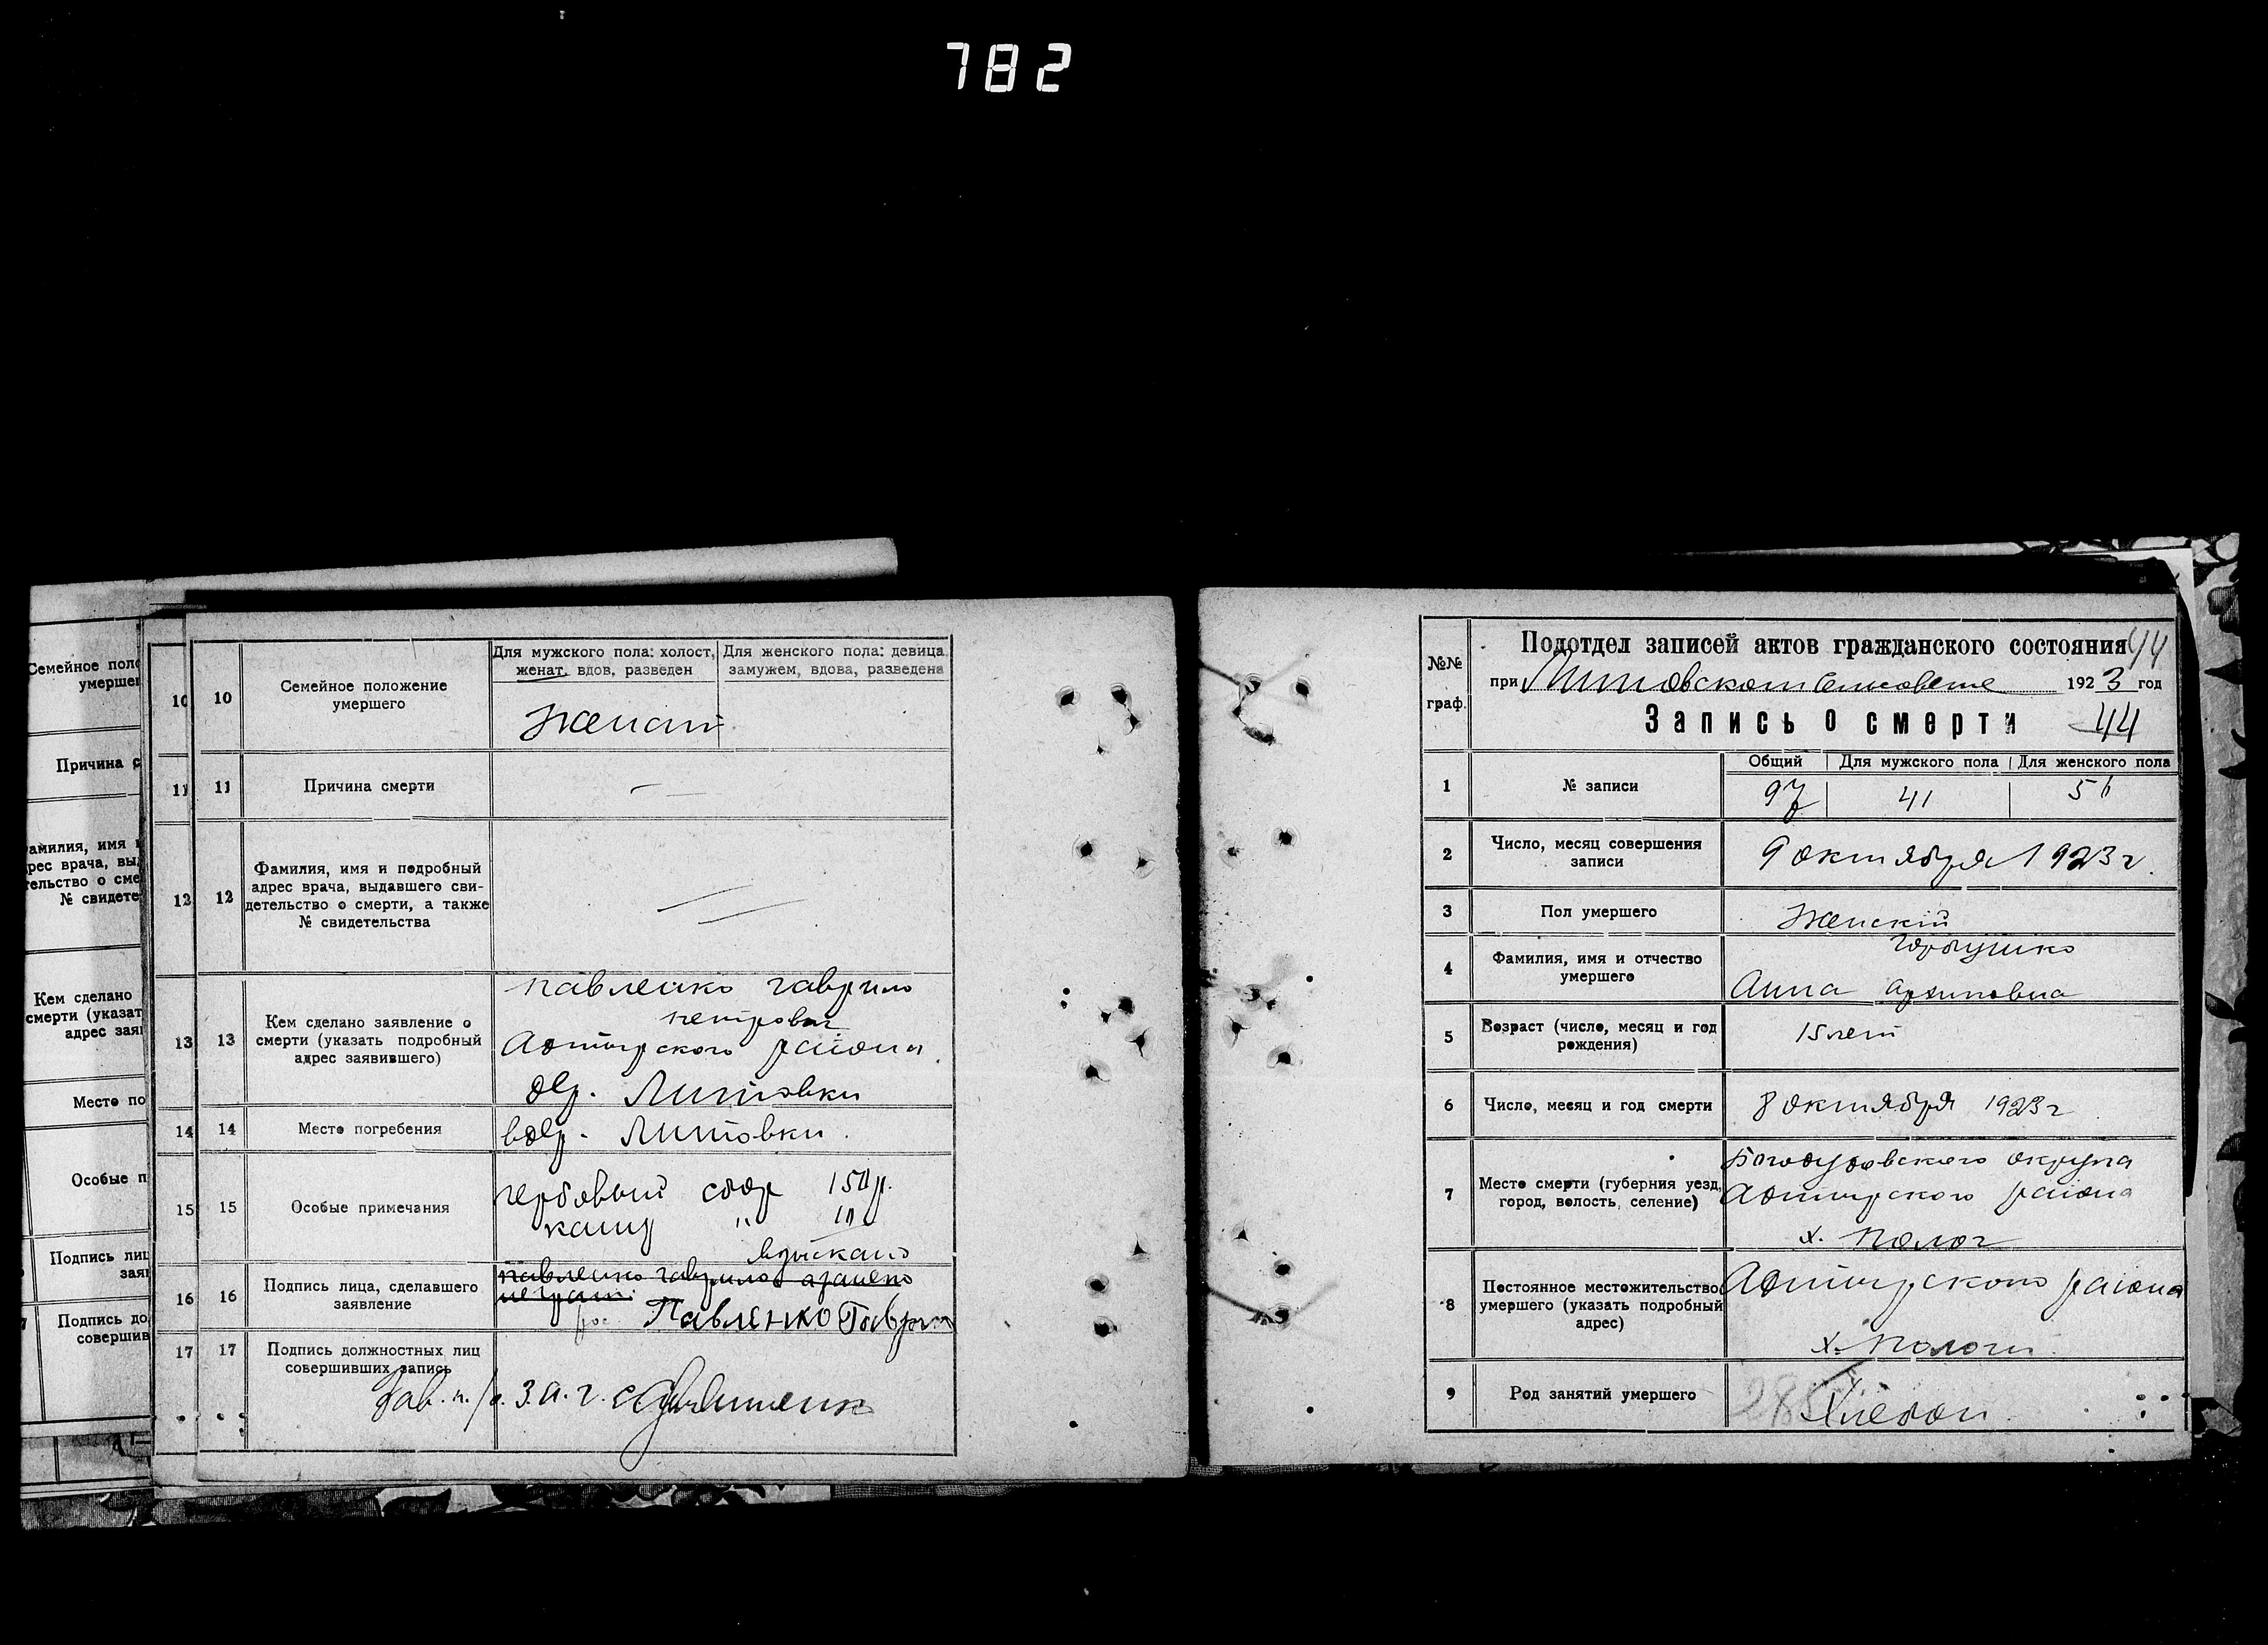 782
Семейное поло
умершег
Причина с
амилия, имя и
рес врача, выд
тельство о сме
№ свидете
Кем сделано
смерти (указат
адрес заяв
Место по
Особые п
Подпись лиц
заяв
Подпись до
совершив
10
11
12
13
14
15
16
17
10 Семейное положение
умершего
Для мужского пола: холост,
женат, вдов, разведен
Для женского пола: девица,
замужем, вдова, разведена
женат
11 Причина смерти —
12 Фамилия, имя и подробный
адрес врача, выдавшего сви-
детельство о смерти, а также
№ свидетельства
13 Кем сделано заявление о
смерти (указать подробный
адрес заявившего)
Павленко Гаврило
Петрович
Ахтырского района
дер. Литовки
14 Место погребения
в дер. Литовки.
15 Особые примечания
гербовый сбор 150 р.
канц " 10
взыскано
16 Подпись лица, сделавшего
заявление
Павленко Гаврило а за него
неграм.
Павленко Гаврил
17 Подпись должностных лиц
совершивших запись
Зав. п/о. З.А.Г.
№№
граф.
Подотдел записей актов гражданского состояния 44
при Литовском Сельсовете 1923 год
Запись о смерти 44
1 № записи
Общий Для мужского пола Для женского пола
97 41 56
2 Число, месяц совершения
записи
9 октября 1923 г.
3 Пол умершего
женский
4 Фамилия, имя и отчество
умершего
Горбушко
Анна Архиповна
5 Возраст (число, месяц и год
рождения)
15 лет
6 Число, месяц и год смерти
8 октября 1923 г
7 Место смерти (губерния уезд,
город, волость, селение)
Богодуховского округа
Ахтырского района
х. Полог
8 Постоянное местожительство
умершего (указать подробный
адрес)
Ахтырского района
х. Пологи
9 Род занятий умершего
Хлебоп.